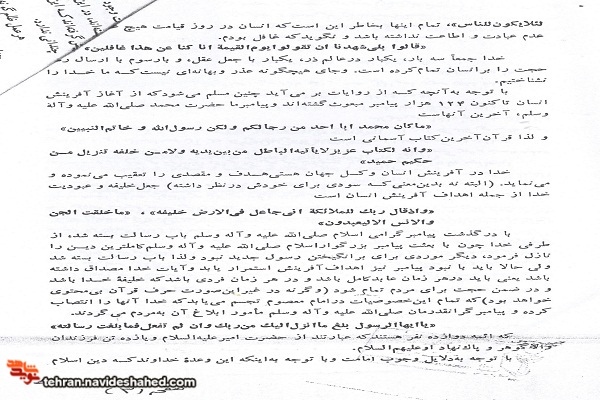 لئلایکون للناس»، تمام اینها بخاطر این است که انسان در روز قیامت هیچ
عدم عبادت و اطاعت نداشته باشد و نگوید که غافل بودم.
«قالوا بلی شهدنا ان تقولوا یوم القیمة انا کنا عن هذا غافلین»
خدا جمعاً سه بار، یکبار در عالم ذر، یکبار با جعل عقل، و بار سوم با ارسال
حجت را بر انسان تمام کرده است. و جای هیچگونه عذر و بهانه‌ای نیست که ما خدا را
نشناختیم.
با توجه به آنچه که از روایات بر می‌آید چنین مسلم می‌شود که از آغاز آفرینش
انسان تا کنون ۱۲۴ هزار پیامبر مبعوث گشته‌اند و پیامبر ما حضرت محمد صلی‌الله علیه و آله
وسلم، آخرین آنهاست
«ماکان محمد ابا احد من رجالکم ولکن رسول‌الله و خاتم النبیین»
و لذا قرآن آخرین کتاب آسمانی است
«وانه لکتاب عزیز لایأتیه الباطل من بین یدیه ولا من خلفه تنزیل من
حکیم حمید»
خدا در آفرینش انسان و کل جهان هستی هدف و مقصدی را تعقیب می‌نموده و
می‌نماید. (البته نه بدین معنی که سودی برای خودش در نظر داشته) جعل خلیفه و عبودیت
خدا از جمله اهداف آفرینش انسان است
«واذقال ربک للملائکة انی جاعل فی الارض خلیفه»، «ماخلقت الجن
والانس الالیعبدون»
با در گذشت پیامبر گرامی اسلام صلی‌الله علیه و آله وسلم باب رسالت بسته شد، از
طرفی خدا چون با بعثت پیامبر بزرگوار اسلام صلی‌الله علیه و آله وسلم کاملترین دین را
نازل فرمود، دیگر موردی برای برانگیختن رسول جدید نبود ولذا باب رسالت بسته شد
ولی حالا باید با نبود پیامبر نیز اهداف آفرینش استمرار یابد و آیات خدا مصداق داشته
باشد یعنی باید در هر زمان عابد کامل باشد و در هر زمان فردی باشد که خلیفهٔ خدا باشد
و در ضمن حجت برای مردم تمام شود (وگرنه در غیر این صورت حرف قرآن بی‌محتوی
خواهد بود) که تمام این خصوصیات در امام معصوم تجسم می‌یابد که خدا آنها را انتصاب
کرده و پیامبر گرانقدرمان صلی‌الله علیه و آله وسلم مأمور ابلاغ آن به مردم می‌گردند.
«یا ایها الرسول بلغ ما انزل الیک من ربک وان لم تفعل فما بلغت رسالته»
که ائمه دوازده نفر هستند که عبارتند از حضرت امیر علیه‌السلام و یازده تن فرزندان
والاگوهر و پاک نهاد او علیهم‌السلام.
با توجه به دلایل وجوب امامت و با توجه به اینکه این وعدهٔ خداوند که دین اسلام
نوید شاهد
tehran.navideshahed.com